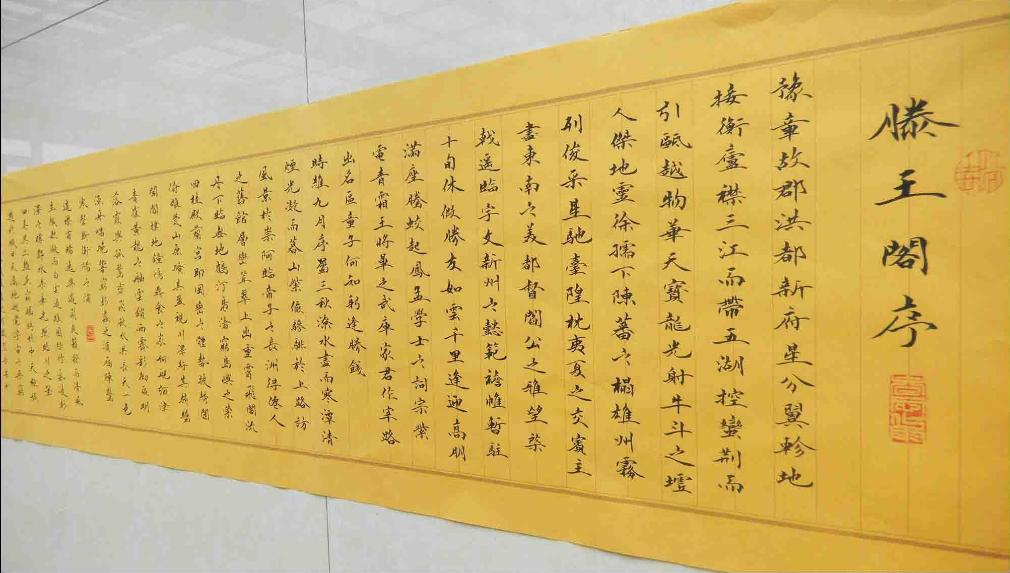 滕王閣序
豫章故郡洪都新府星分翼軫地
接衡廬襟三江而帶五湖控蠻荊而
引甌越物華天寶龍光射牛斗之墟
人傑地靈徐孺下陳蕃之榻雄州霧
列俊采星馳臺隍枕夷夏之交賓主
盡東南之美都督閻公之雅望棨
戟遥臨宇文新州之懿範襜帷暫駐
十旬休假勝友如雲千里逢迎高朋
滿座騰蛟起鳳孟學士之詞宗紫
電青霜王將軍之武庫家君作宰路
出名區童子何知躬逢勝餞
時維九月序屬三秋潦水盡而寒潭清
煙光凝而暮山紫儼驂騑於上路訪
風景於崇阿臨帝子之長洲得僊人
之舊館層巒聳翠上出重霄飛閣流
丹下臨無地鶴汀鳧渚窮島嶼之縈
回桂殿蘭宮即岡巒之體勢披繡闥
俯雕甍山原曠其盈視川澤紆其駭矚
閭閻撲地鐘鳴鼎食之家舸艦彌津
青雀黃龍之舳雲銷雨霽彩徹區明
落霞與孤鶩齊飛秋水共長天一色
漁舟唱晚響窮彭蠡之濱雁陣驚
寒聲斷衡陽之浦